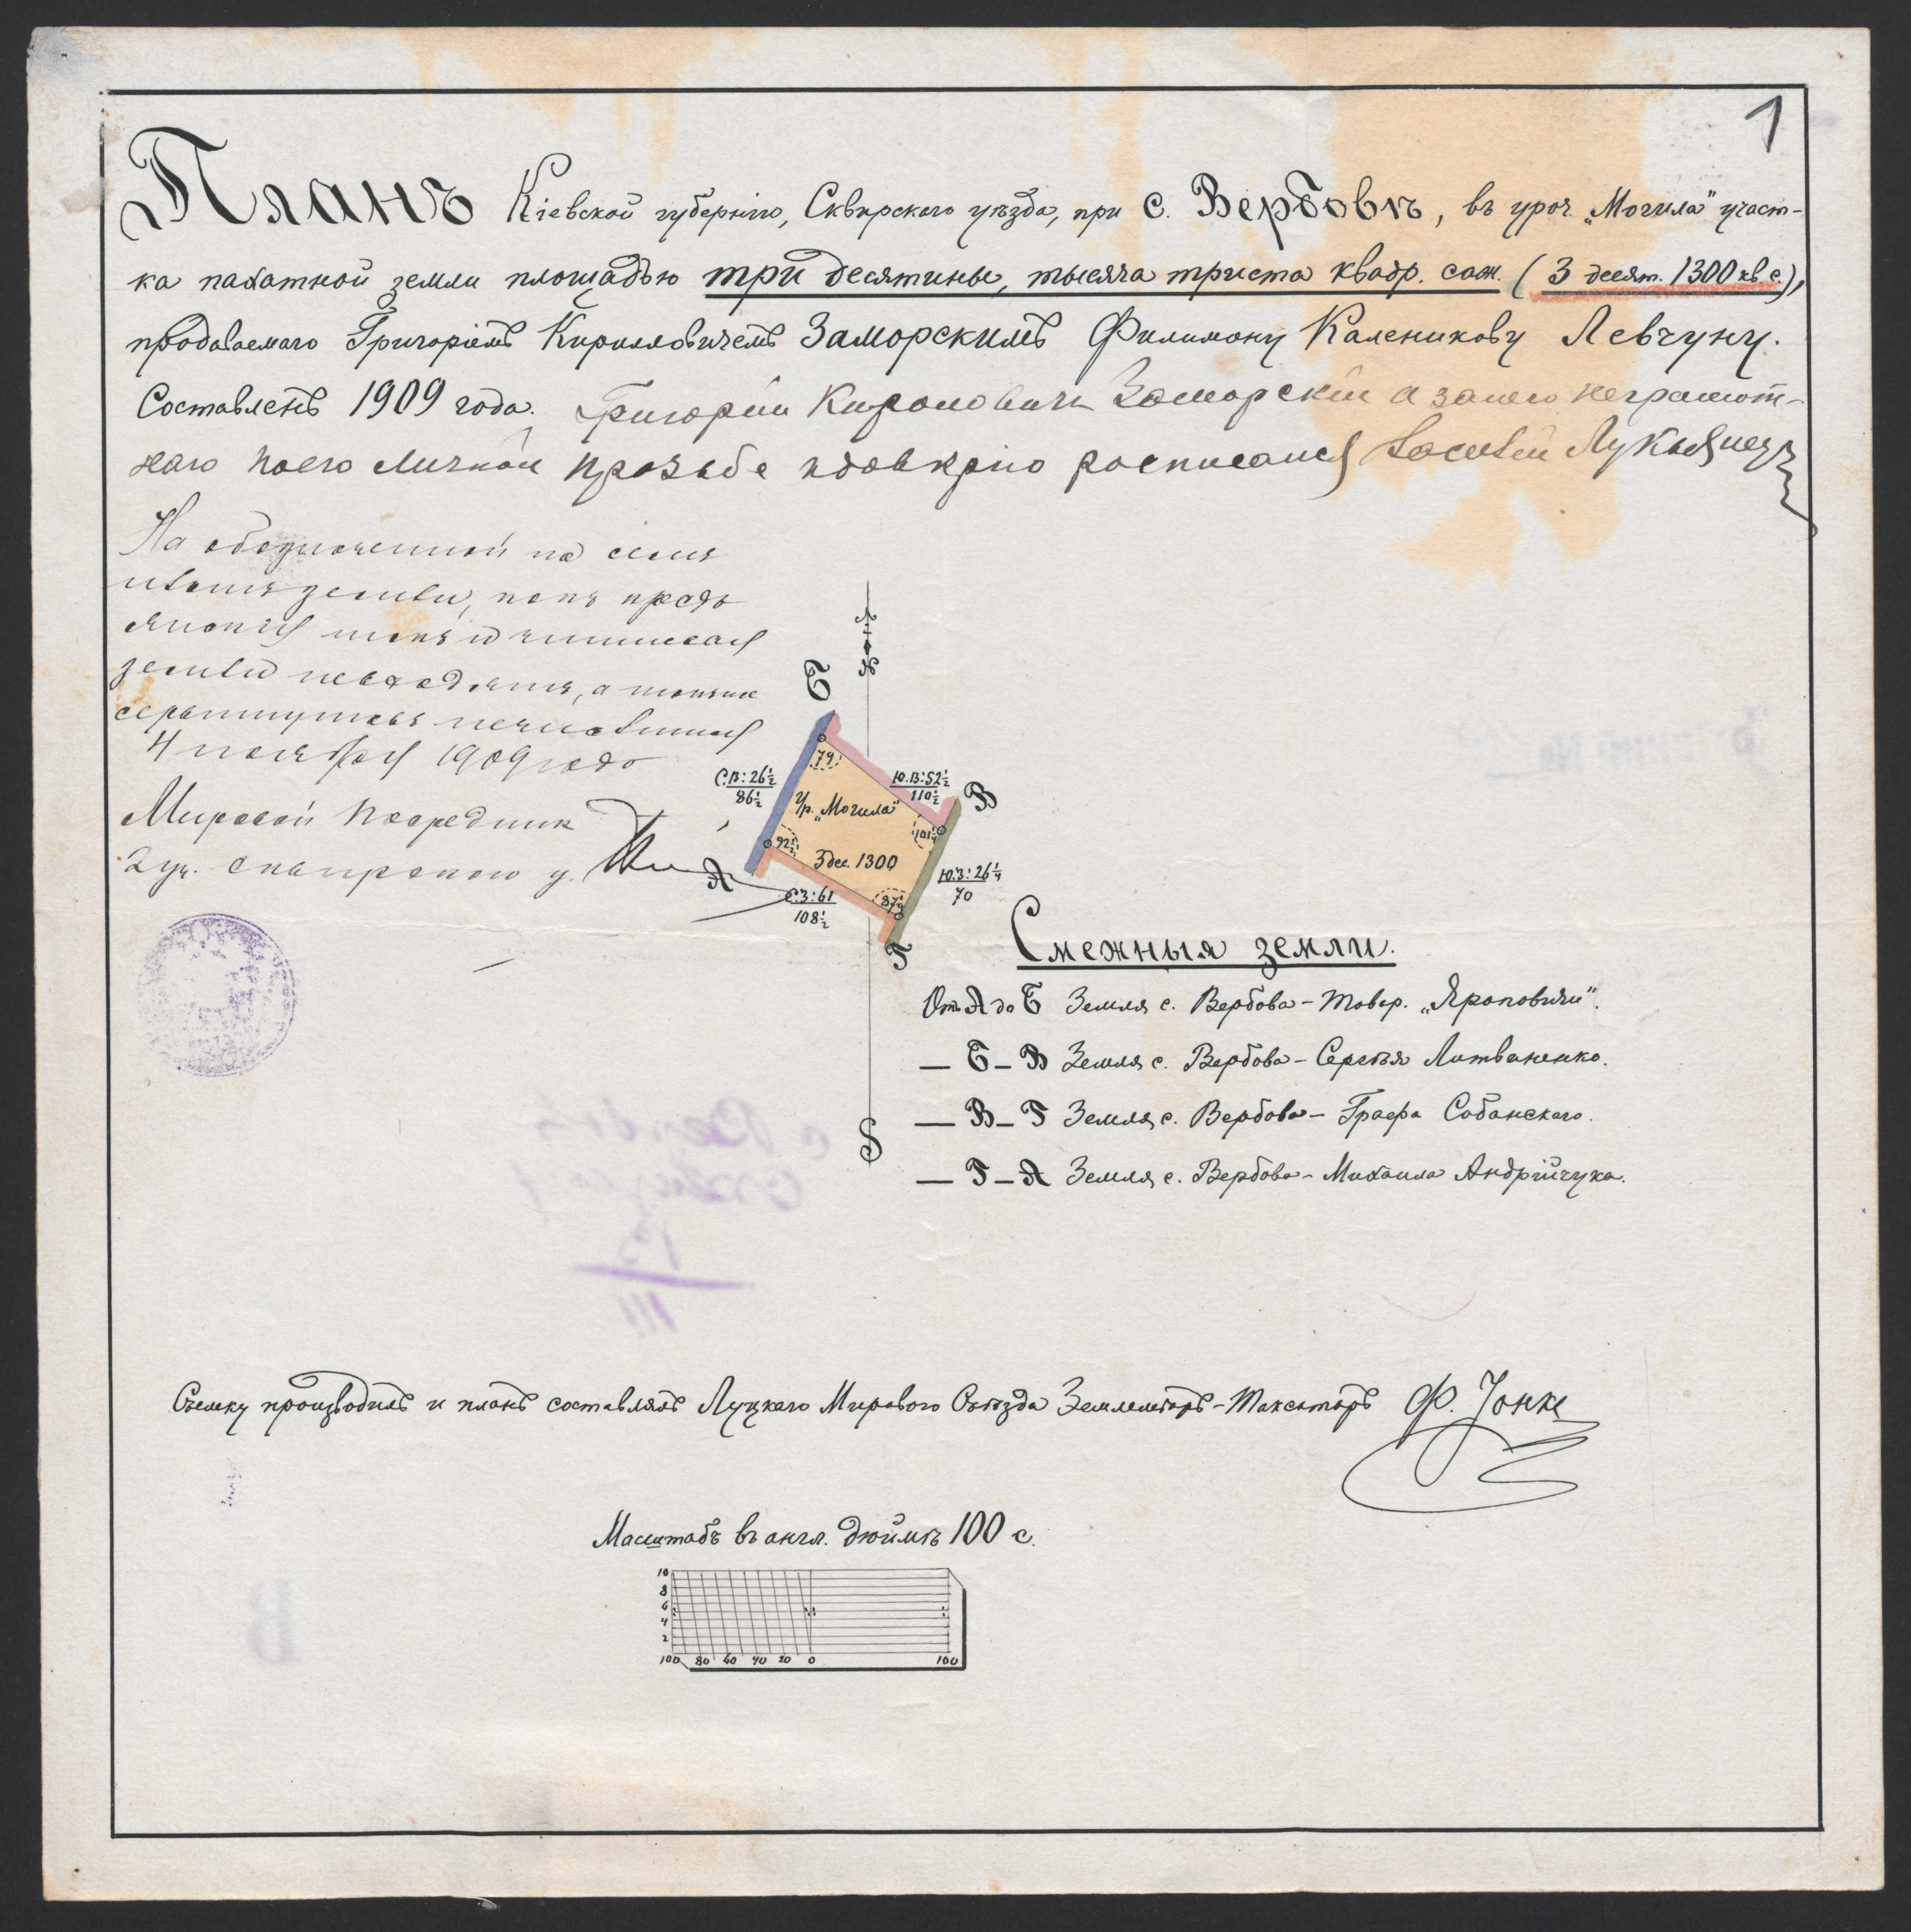 1
Планъ Кіевской губерніи, Сквирскаго уѣзда, при с. Вербовѣ, въ уроч. „Могила" участ-
ка пахатной земли площадью три десятины, тысяча триста квадр. саж. (3 десят. 1300 кв. с.),
продаваемаго Григоріемъ Кирилловичемъ Заморскимъ Филимону Каленикову Левчуну.
Составленъ 1909 года. Григорій Кириловичъ Заморскій а за него неграмот-
наго по его личной прозьбе и довѣрію росписался Василій Лукьянец
На обозначенной на семъ
планѣ земли,
земли не входятъ, а
4 ноября 1909 года
Мировой Посредник
2 уч. Сквирскаго у.
Б
С.В: 26½
86½
79
Ю.В: 52½
110½
В
Ур. „Могила"
3 дес. 1300
92½
101¼
87¼
А
С.З: 61
108½
Ю.З: 26¼
70
Г
S
Смежныя земли.
Отъ А до Б Земля с. Вербова - Товар. „Яроповичи".
— Б — В Земля с. Вербова - Сергѣя Литвиненко.
— В — Г Земля с. Вербова - Графа Собанскаго.
— Г — А Земля с. Вербова - Михаила Андрійчука.
Съемку производилъ и планъ составлялъ Луцкаго Мирового Съѣзда Землемѣръ-Таксаторъ Ф. Іонке
Масштабъ въ англ. дюймѣ 100 с.
10
8
6
4
2
100 80 60 40 20 0 100